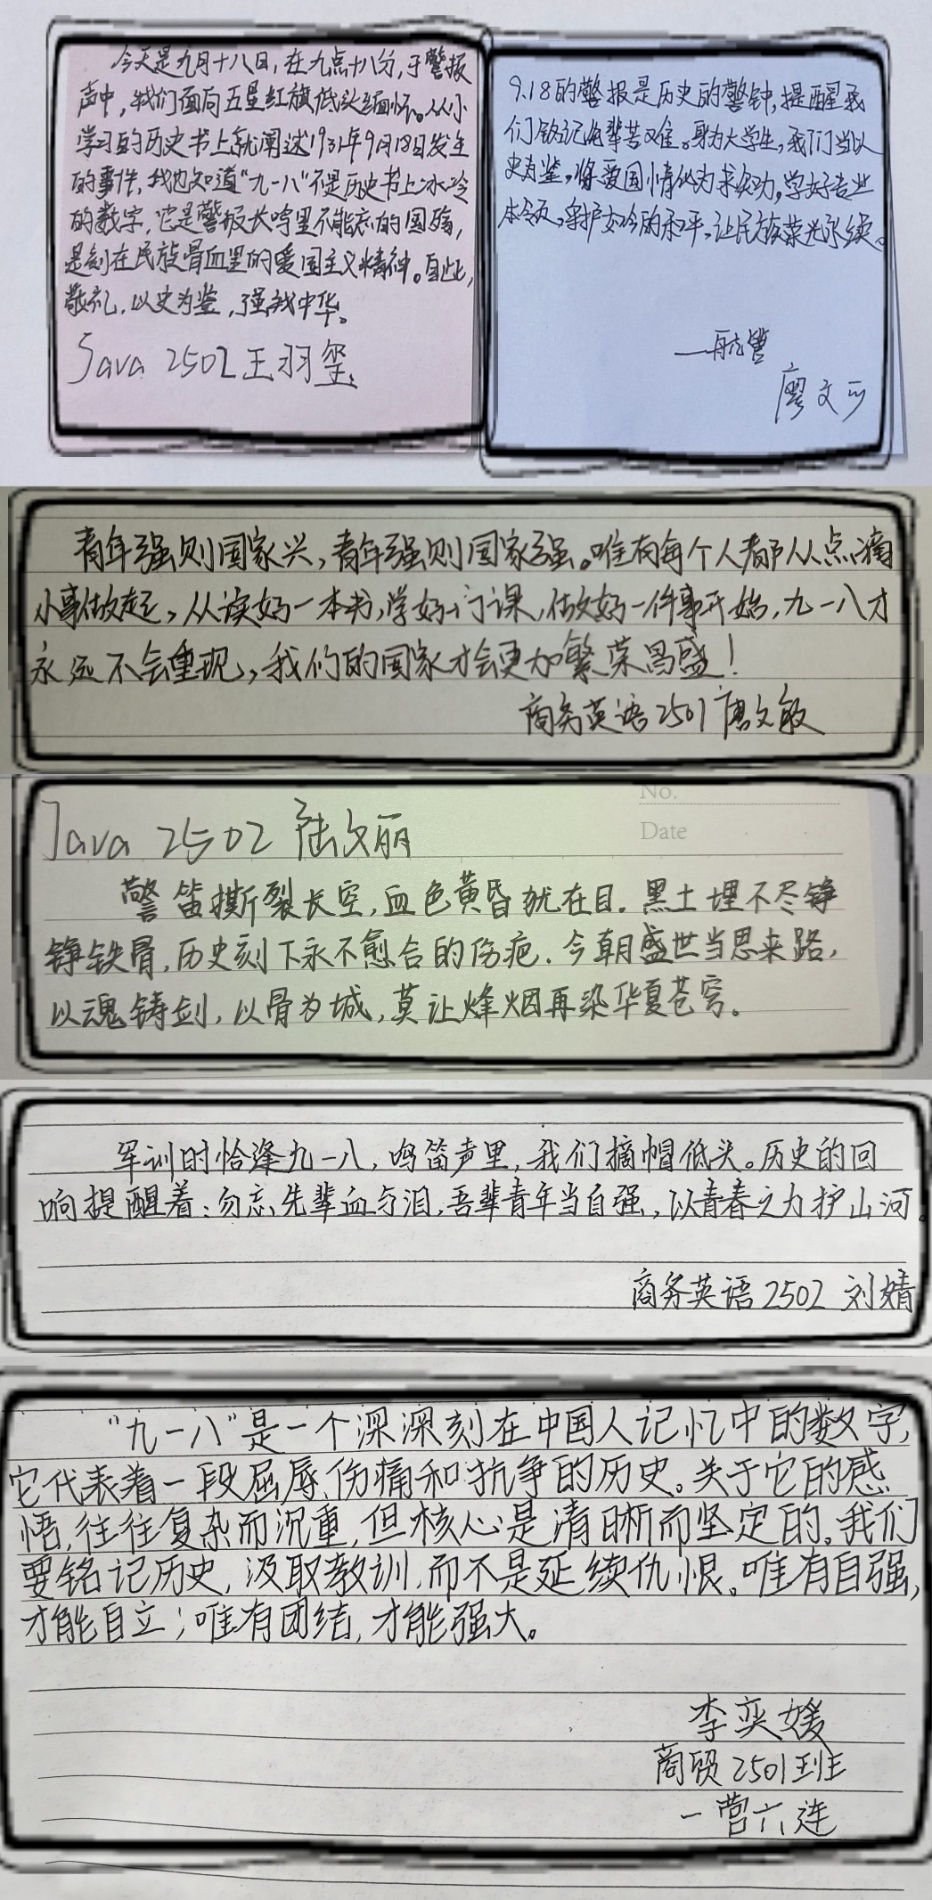 今天是九月十八日,在九点十八分,于警报
声中,我们面向五星红旗低头缅怀。从小
学习的历史书上就阐述1931年9月18日发生
的事件,我也知道"九一八"不是历史书上冰冷
的数字,它是警报长鸣里不能忘的国殇,
是刻在民族骨血里的爱国主义精神。自此,
敬礼,以史为鉴,强我中华。
Java 2502 王羽玺
9.18的警报是历史的警钟,提醒我
们铭记先辈苦难。身为大学生,我们当以
史为鉴,将爱国情化为求知动力,学好专业
本领,守护如今的和平,让民族荣光永续。
——航管
廖文
青年强则国家兴,青年强则国家强。唯有每个人都从点滴
小事做起,从读好一本书,学好一门课,做好一件事开始,九一八才
永远不会重现,我们的国家才会更加繁荣昌盛!
商务英语2501 唐文敏
No.
Date
Java 2502 陆文丽
警笛撕裂长空,血色黄昏犹在目.黑土埋不尽铮
铮铁骨,历史刻下永不愈合的伤疤.今朝盛世当思来路,
以魂铸剑,以骨为城,莫让烽烟再染华夏苍穹。
军训时恰逢九一八,鸣笛声里,我们摘帽低头。历史的回
响提醒着:勿忘先辈血与泪,吾辈青年当自强,以青春之力护山河。
商务英语2502 刘婧
"九一八"是一个深深刻在中国人记忆中的数字,
它代表着一段屈辱、伤痛和抗争的历史。关于它的感
悟,往往复杂而沉重,但核心是清晰而坚定的。我们
要铭记历史,汲取教训,而不是延续仇恨。唯有自强,
才能自立;唯有团结,才能强大。
李奕媛
商贸2501班
一营六连